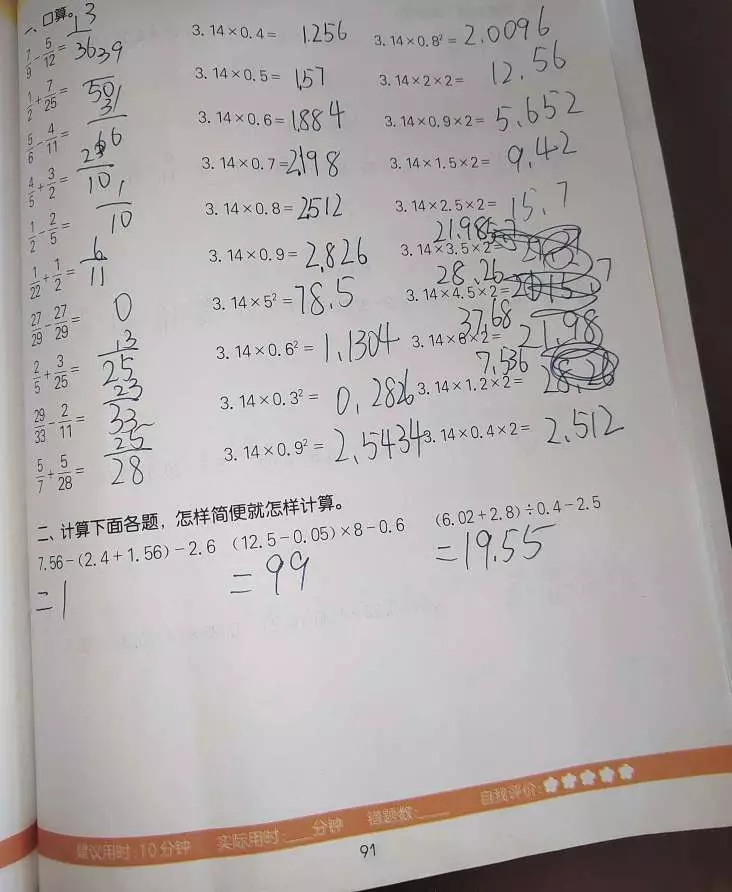 一、口算。
7/9-5/12=13/36 3.14×0.4=1.256 3.14×0.8²=2.0096
1/2+7/25=39/50 3.14×0.5=1.57 3.14×2×2=12.56
5/6-4/11=31/66 3.14×0.6=1.884 3.14×0.9×2=5.652
4/5+3/2=23/10 3.14×0.7=2.198 3.14×1.5×2=9.42
1/2-2/5=1/10 3.14×0.8=2.512 3.14×2.5×2=15.7
1/22+1/2=6/11 3.14×0.9=2.826 3.14×3.5×2=21.98
27/29-27/29=0 3.14×5²=78.5 3.14×4.5×2=28.26
2/5+3/25=13/25 3.14×0.6²=1.1304 3.14×6×2=37.68 21.98
29/33-2/11=23/33 3.14×0.3²=0.2826 3.14×1.2×2=7.536 28.26
5/7+5/28=25/28 3.14×0.9²=2.5434 3.14×0.4×2=2.512
二、计算下面各题，怎样简便就怎样计算。
7.56-(2.4+1.56)-2.6 (12.5-0.05)×8-0.6 (6.02+2.8)÷0.4-2.5
=1 =99 =19.55
建议用时:10分钟 实际用时:___分钟 错题数:___ 自我评价:
91